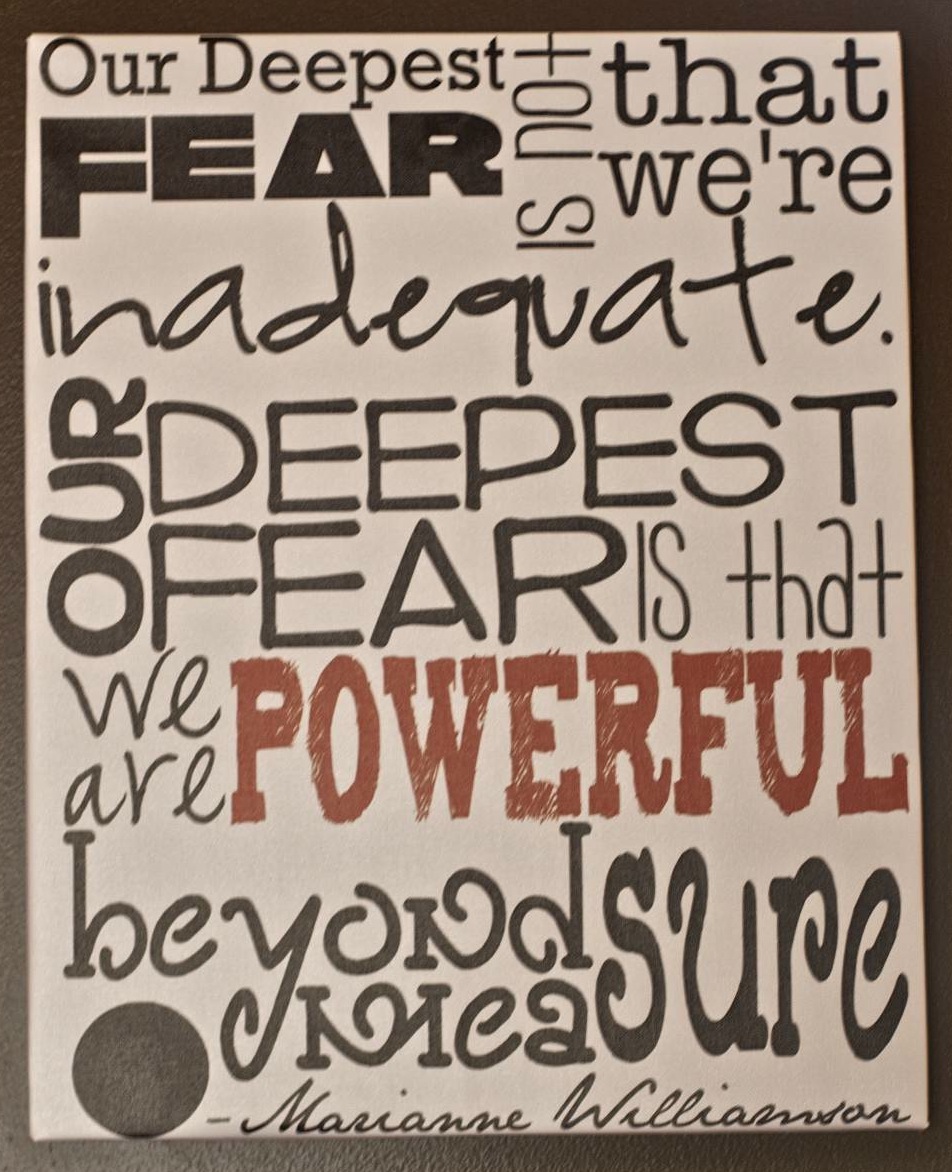 Our Deepest
FEAR
is not
that
we're
inadequate.
OUR
DEEPEST
FEAR is that
we
are
POWERFUL
beyond
measure
- Marianne Williamson